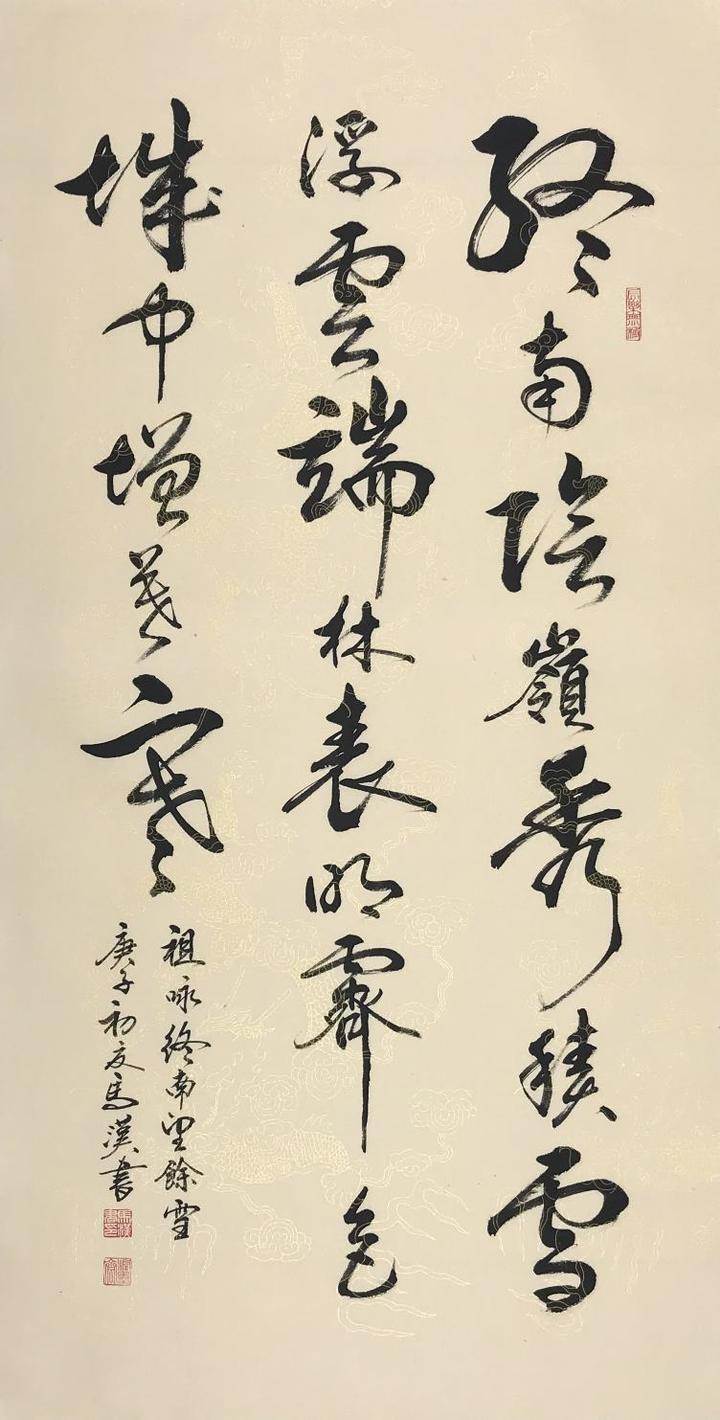 終南陰嶺秀積雪
浮雲端林表明霽色
城中增暮寒
祖咏終南望餘雪
庚子初夏馬漢書